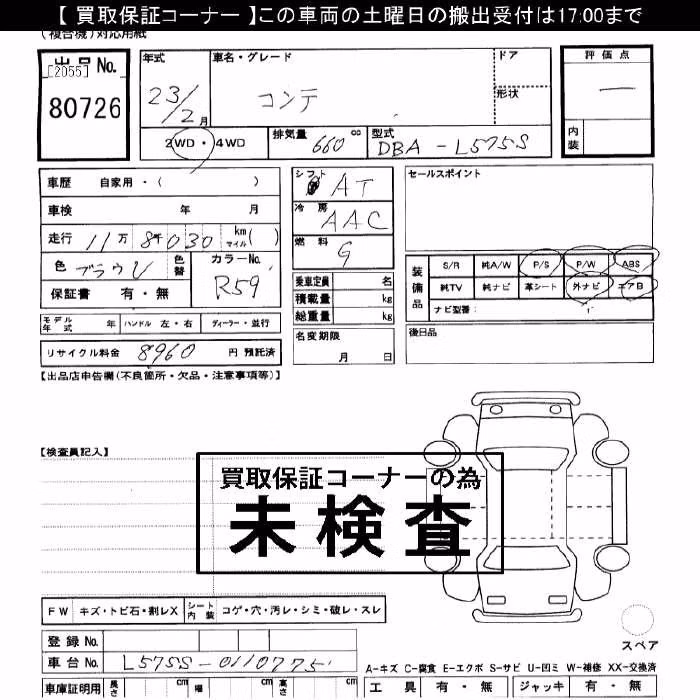 【 買取保証コーナー 】この車両の土曜日の搬出受付は17:00まで
(複合機)対応用紙
出品 No.
[2055]
80726
年式
23/2月
車名・グレード
コンテ
ドア
形状
評価点
一
内装
2WD・4WD
排気量 660 cc
型式 DBA-L575S
車歴 自家用・( )
車検 年 月
走行 11万8千030 km マイル( )
色 ブラウン 色替
カラーNo. R59
保証書 有・無
シフト AT
冷房 AAC
燃料 G
乗車定員 名
積載量 kg
総重量 kg
名変期限 月 日
セールスポイント
装備品
S/R 純A/W P/S P/W ABS
純TV 純ナビ 革シート 外ナビ エアB
ナビ型番:
後日品
モデル年式 年 ハンドル 左・右 ディーラー・並行
リサイクル料金 8960 円 預託済
【出品店申告欄(不良箇所・欠品・注意事項等)】
【検査員記入】
買取保証コーナーの為
未検査
FW キズ・トビ石・割レX シート内装 コゲ・穴・汚レ・シミ・破レ・スレ
登録 No.
車台 No. L575S-0110775
スペア
A-キズ C-腐食 E-エクボ S-サビ U-凹ミ W-補修 XX-交換済
車庫証明用 長さ cm 幅 cm 高さ cm
工具 有・無 ジャッキ 有・無